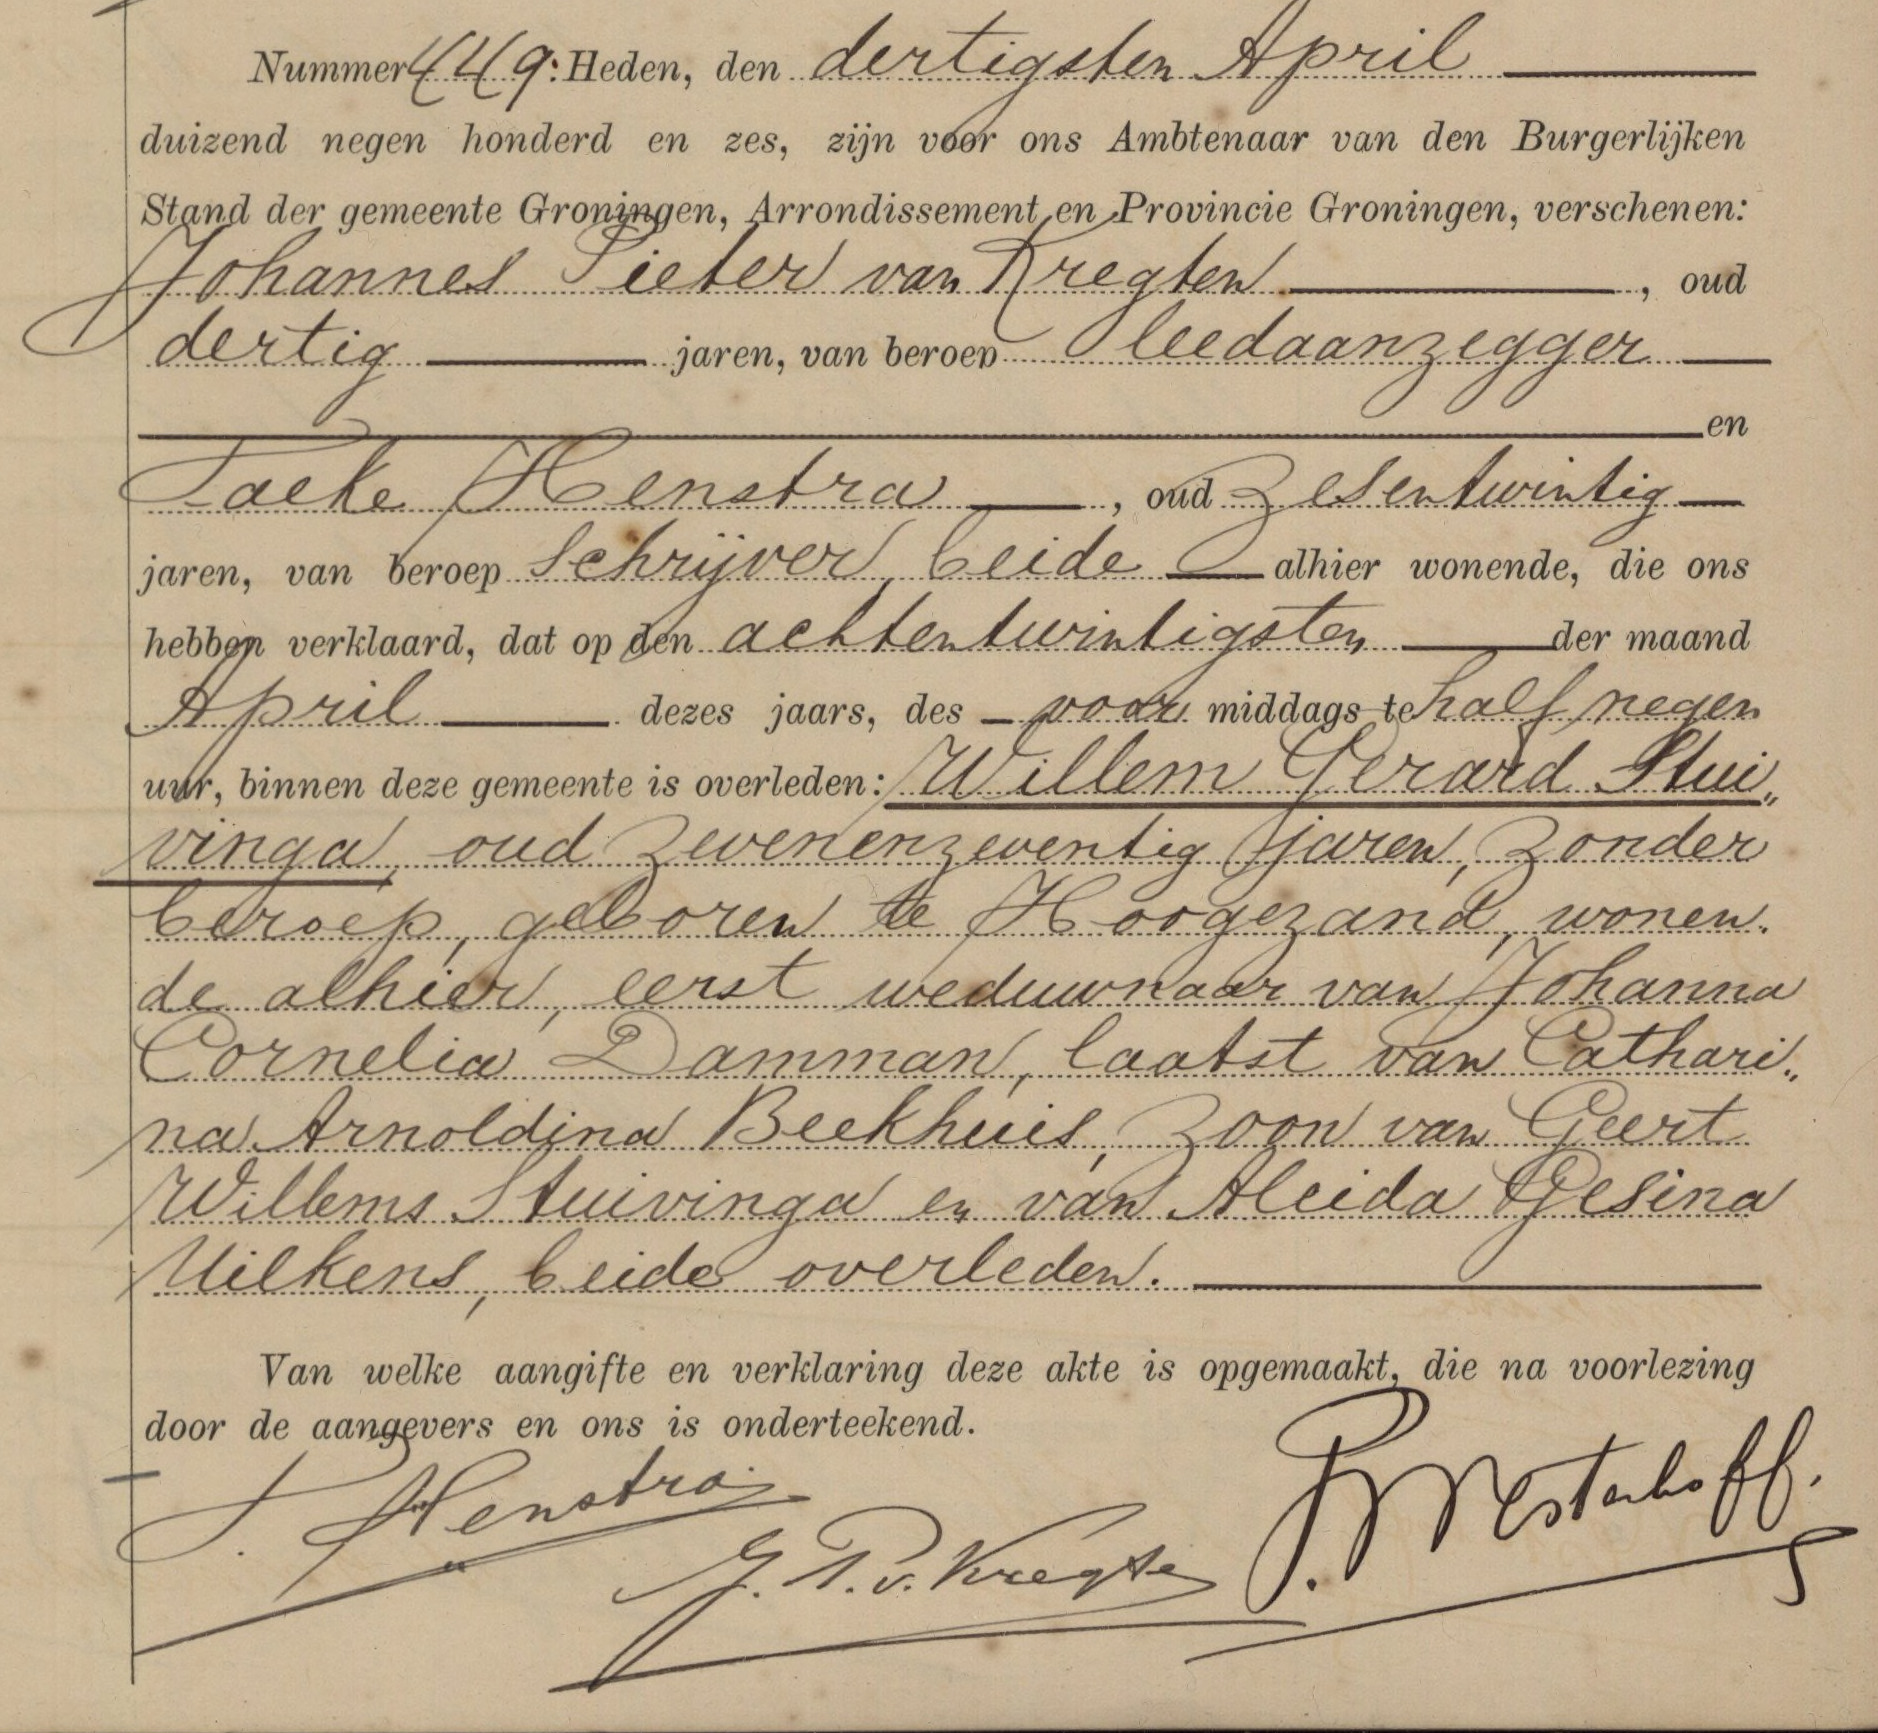 Nummer 449: Heden, den dertigsten April
duizend negen honderd en zes, zijn voor ons Ambtenaar van den Burgerlijken
Stand der gemeente Groningen, Arrondissement en Provincie Groningen, verschenen:
Johannes Pieter van Kregten, oud
dertig jaren, van beroep leedaanzegger
en
Taeke Henstra, oud zesentwintig
jaren, van beroep schrijver, beide alhier wonende, die ons
hebben verklaard, dat op den achtentwintigsten der maand
April dezes jaars, des voor middags te half negen
uur, binnen deze gemeente is overleden: Willem Gerard Stui„
vinga, oud zevenenzeventig jaren, zonder
beroep, geboren te Hoogezand, wonen.
de alhier, eerst weduwnaar van Johanna
Cornelia Damman, laatst van Cathari„
na Arnoldina Beekhuis, zoon van Geert
Willems Stuivinga en van Aleida Gesina
Uilkens, beide overleden.
Van welke aangifte en verklaring deze akte is opgemaakt, die na voorlezing
door de aangevers en ons is onderteekend.
T. Henstra
J. P. v. Kregten
P. Westerhoff.